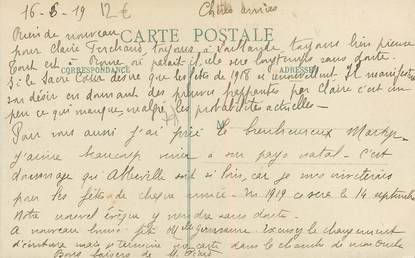 16-6-19 12€ Chères amies
CARTE POSTALE
Rien de nouveau
pour Claire Ferchaud, toujours à toujours bien pieuse
Tout est à Rome où paraît-il, elle sera longtemps sans doute.
CORRESPONDANCE ADRESSE
Si le Sacré Coeur désire que les faits de 1918 se renouvellent Il manifestera
son désir en donnant des preuves frappantes par Claire c'est un
peu ce qui manque, malgré les probabilités actuelles-
Pour vous aussi j'ai prié le bienheureux
j'aime beaucoup venir à son pays natal. C'est
dommage qu'Abbeville soit si loin, car je vous inviterais
pour les fêtes de chaque année. En 1919 ce sera le 14 septembre
Notre nouvel évêque y viendra sans doute.
A nouveau Melle Germaine excusez le changement
d'écriture mais je termine ma carte dans la chambre de mon oncle
Bons baisers de M.